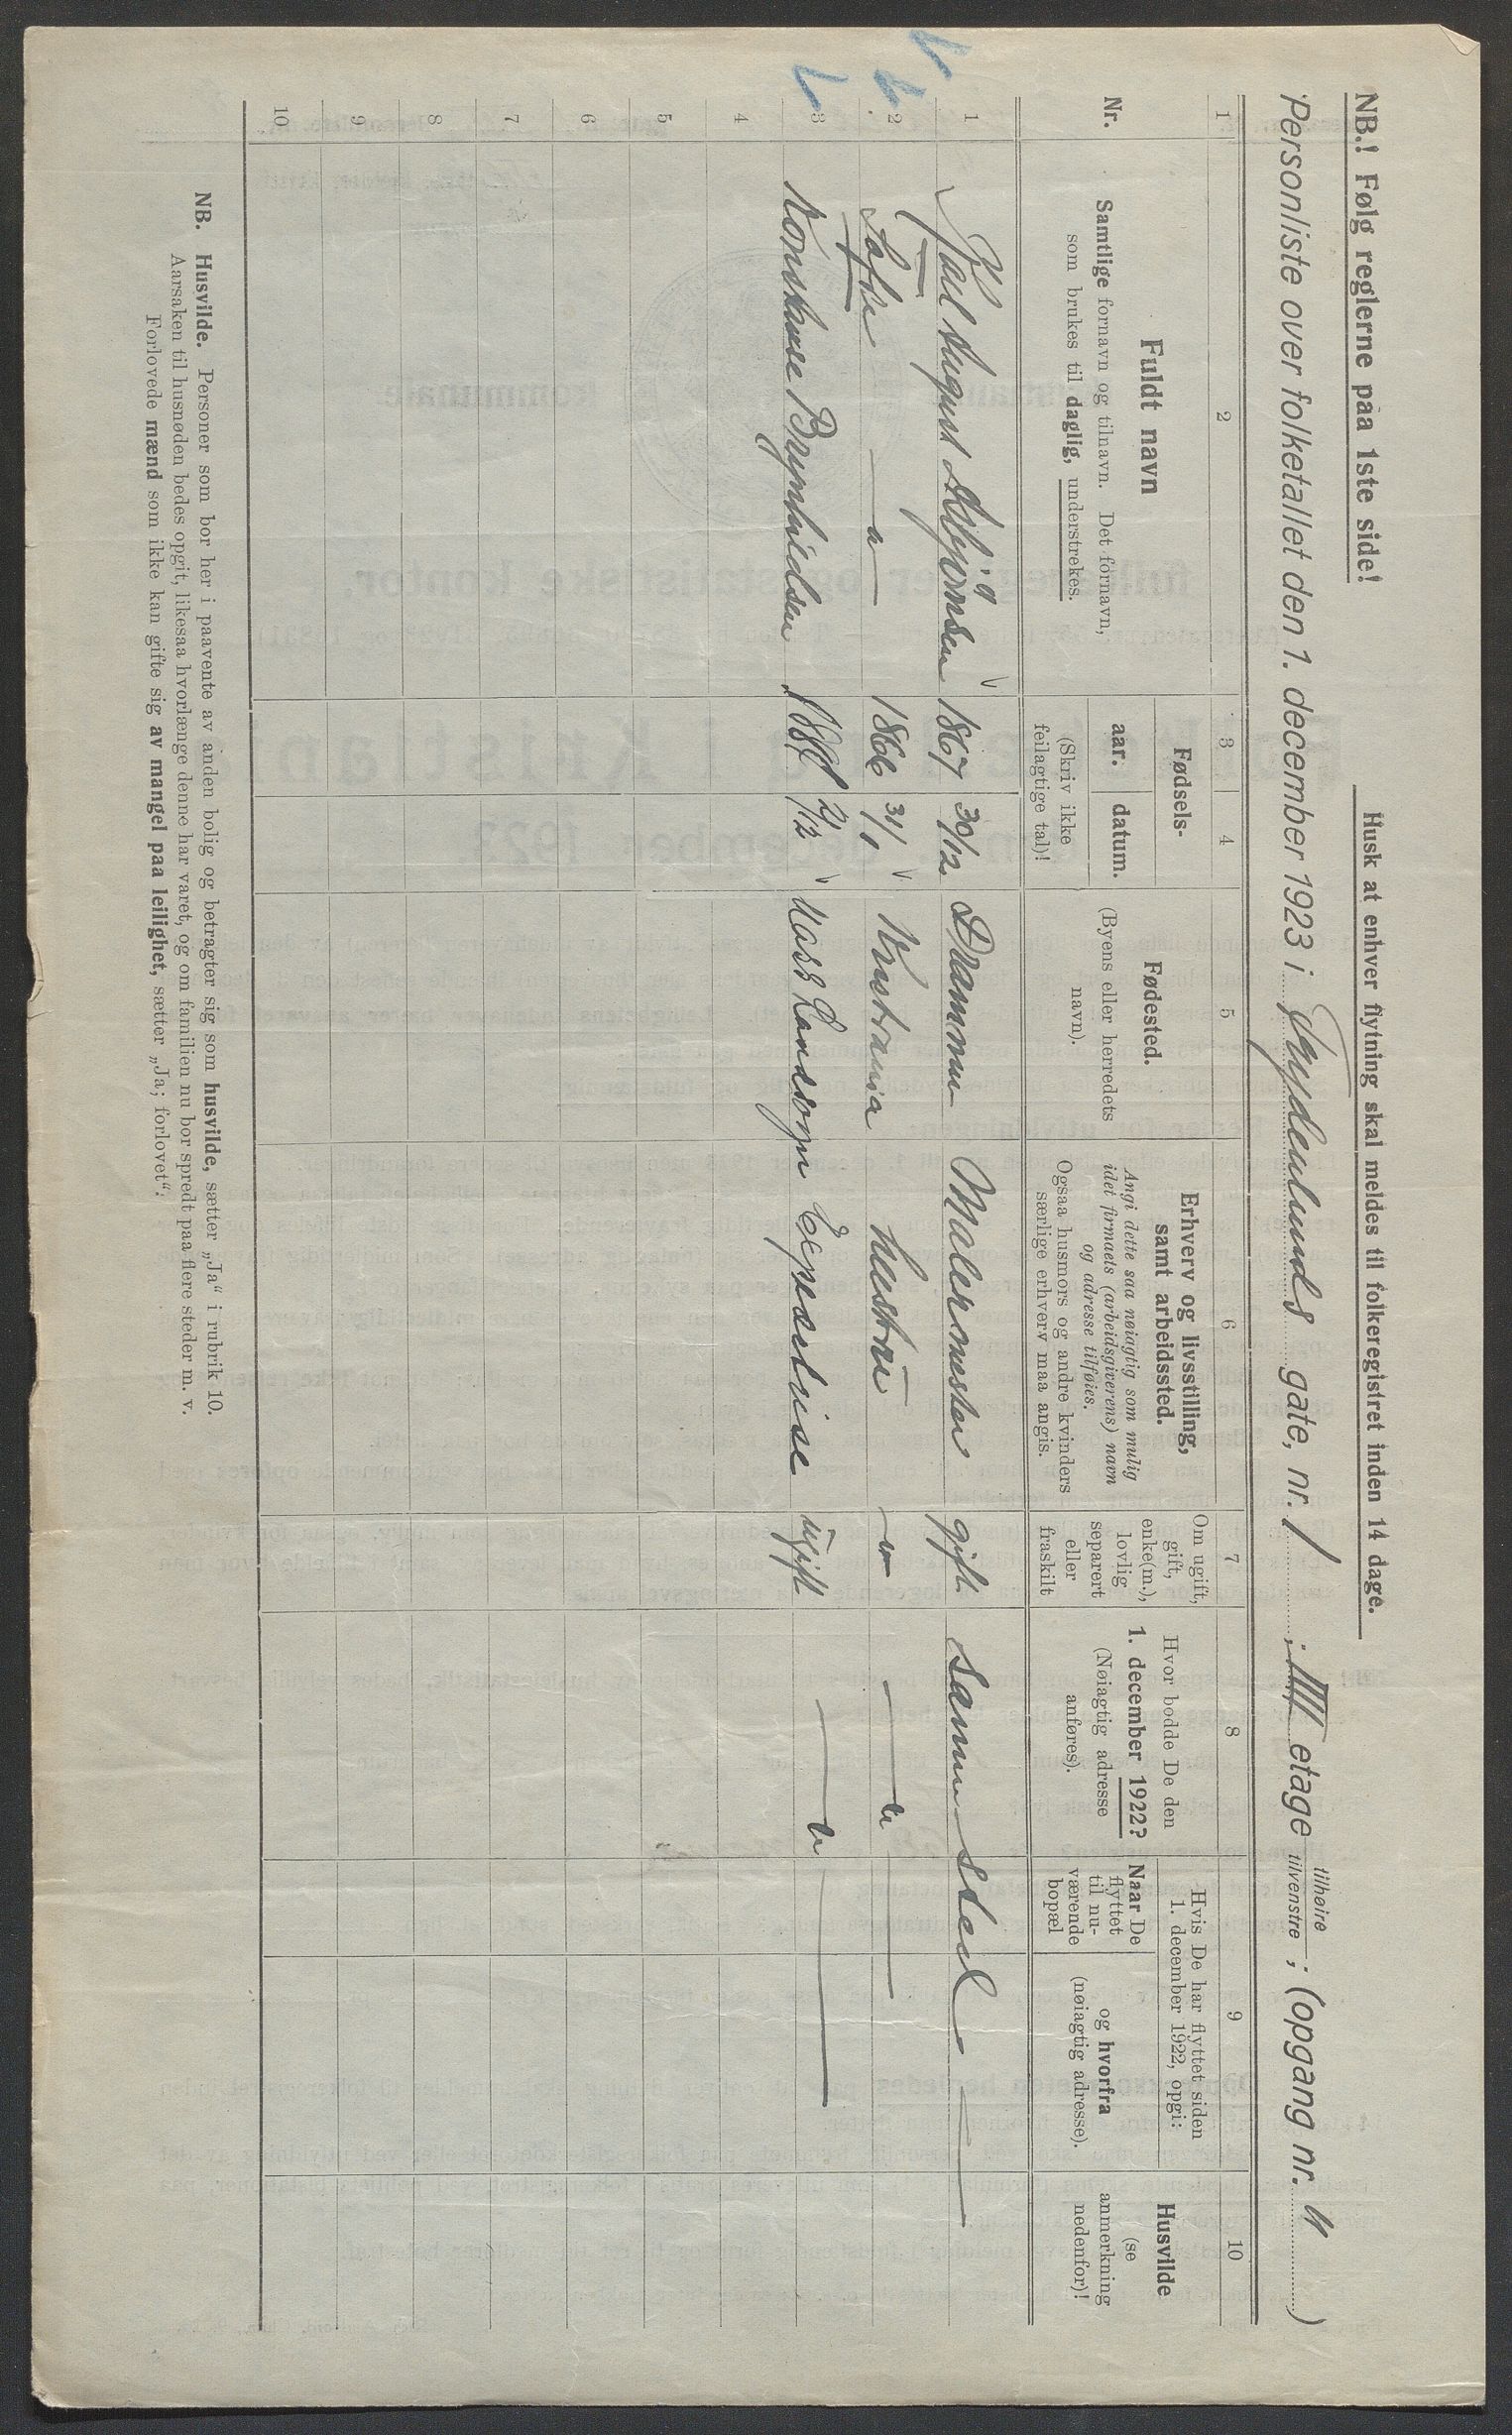 NB.! Følg reglerne paa 1ste side!
Husk at enhver flytning skal meldes til folkeregistret inden 14 dage.
Personliste over folketallet den 1. december 1923 i Gyldenlunds gate, nr. 1 ; IIII etage tilhøire tilvenstre ; (opgang nr. )
1 2 3 4 5 6 7 8 9 10
Nr.
Fuldt navn
Samtlige fornavn og tilnavn. Det fornavn,
som brukes til daglig, understrekes.
Fødsels-
aar. datum.
(Skriv ikke
feilagtige tal)!
Fødested.
(Byens eller herredets
navn).
Erhverv og livsstilling,
samt arbeidssted.
Angi dette saa nøiagtig som mulig
idet firmaets (arbeidsgiverens) navn
og adresse tilføies.
Ogsaa husmors og andre kvinders
særlige erhverv maa angis.
Om ugift,
gift,
enke(m.),
lovlig
separert
eller
fraskilt
Hvor bodde De den
1. december 1922?
(Nøiagtig adresse
anføres).
Hvis De har flyttet siden
1. december 1922, opgi:
Naar De
flyttet
til nu-
værende
bopæl
og hvorfra
(nøiagtig adresse).
Husvilde
(se
anmerkning
nedenfor)!
1 Karl August Asbjørnsen 1867 30/12 Drammen Malermester gift samme sted
2 Sofie — " — 1866 31/1 Kristiania hustru — " — — " —
3 Konstanse Brynhildsen 1887 2/12 Moss Landsogn Expeditrise ugift — " —
4
5
6
7
8
9
10
NB. Husvilde. Personer som bor her i paavente av anden bolig og betragter sig som husvilde, sætter „Ja" i rubrik 10.
Aarsaken til husnøden bedes opgit, likesaa hvorlænge denne har varet, og om familien nu bor spredt paa flere steder m. v.
Forlovede mænd som ikke kan gifte sig av mangel paa leilighet, sætter „Ja; forlovet".